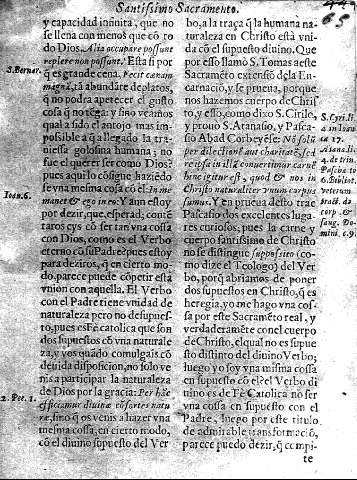 Santissimo Sacramento.
65
y capacidad infinita, que no
se llena con menos que cō to
do Dios. Alia occupare possunt
replere non possunt. Esta si por
q̄ es grande cena. Fecit cœnam
magnā, tā abundāte de platos,
q̄ no podra apetecer el gusto
cosa q̄ no tēga: y sino veamos
qual a sido el antojo mas imp
possible a q̄ a llegado la tra-
uiessa golosina humana; no
fue el querer ser como Dios?
pues aquilo cōsigue haziēdo
se vna mesma cosa cō el. In me
manet & ego in eo. Y aun estoy
por dezir, que, esperad; conten
taros cys cō ser tan vna cosa
con Dios, como es el Verbo
eterno cō su Padre? pues estoy
para deziros, q̄ en cierto mo-
do, parece puede cōpetir esta
vnion con aquella. El Verbo
con el Padre tiene vnidad de
naturaleza pero no de supues-
to, pues es Fè catolica que son
dos supuestos cō vna naturale
za, y vos quādo comulgais cō
deuida disposicion, no solo ve
nis a participar la naturaleza
de Dios por la gracia: Per hæc
efficiamur diuinæ cōsortes natu
ræ, sino q̄ os venis a hazer vna
mesma cosa, en cierto modo,
cō el diuino supuesto del Ver
S. Bernar.
Ioan. 6.
2. Pet. 1.
bo, a la traça q̄ la humana na-
turaleza en Christo està vni-
da cō el supuesto diuino. Que
por esso llamò S. Tomas a este
Sacramēto extensiō de la En-
carnaciō, y se prueua, porque
nos hazemos cuerpo de Chris
to, y esso, como dize S. Cirilo,
y prouò S. Atanasio, y Pasca-
sio Abad Corbeyēse: Nō solū
per dilectionē aut charitatē, sed
re ipsa in illā conuertimur carnē
hinc igitur est, quod & nos in
Christo naturaliter vnum corpus
sumus. Y en prueua desto trae
Pascasio dos excelentes luga-
res curiosos; pues la carne y
cuerpo santissimo de Christo
no se distingue supposito (co-
mo dize el Teologo) del Ver-
bo, porq̄ abriamos de poner
dos supuestos en Christo, q̄ es
heregia, yo me hago vna cos-
sa por este Sacramēto real, y
verdaderamēte con el cuerpo
de Christo, el qual no es supue
sto distinto del diuino Verbo;
luego yo soy vna misma cossa
en supuesto cō el del Verbo di
uino es de Fè Catolica no ser
vna cossa en supuesto con el
Padre, luego por este titulo,
de admirable transformaciō,
parece puedo dezir, q̄ cōpi
te
S. Cyri. li.
de trin.
Pascasio to
6. Bibliot.
veterum